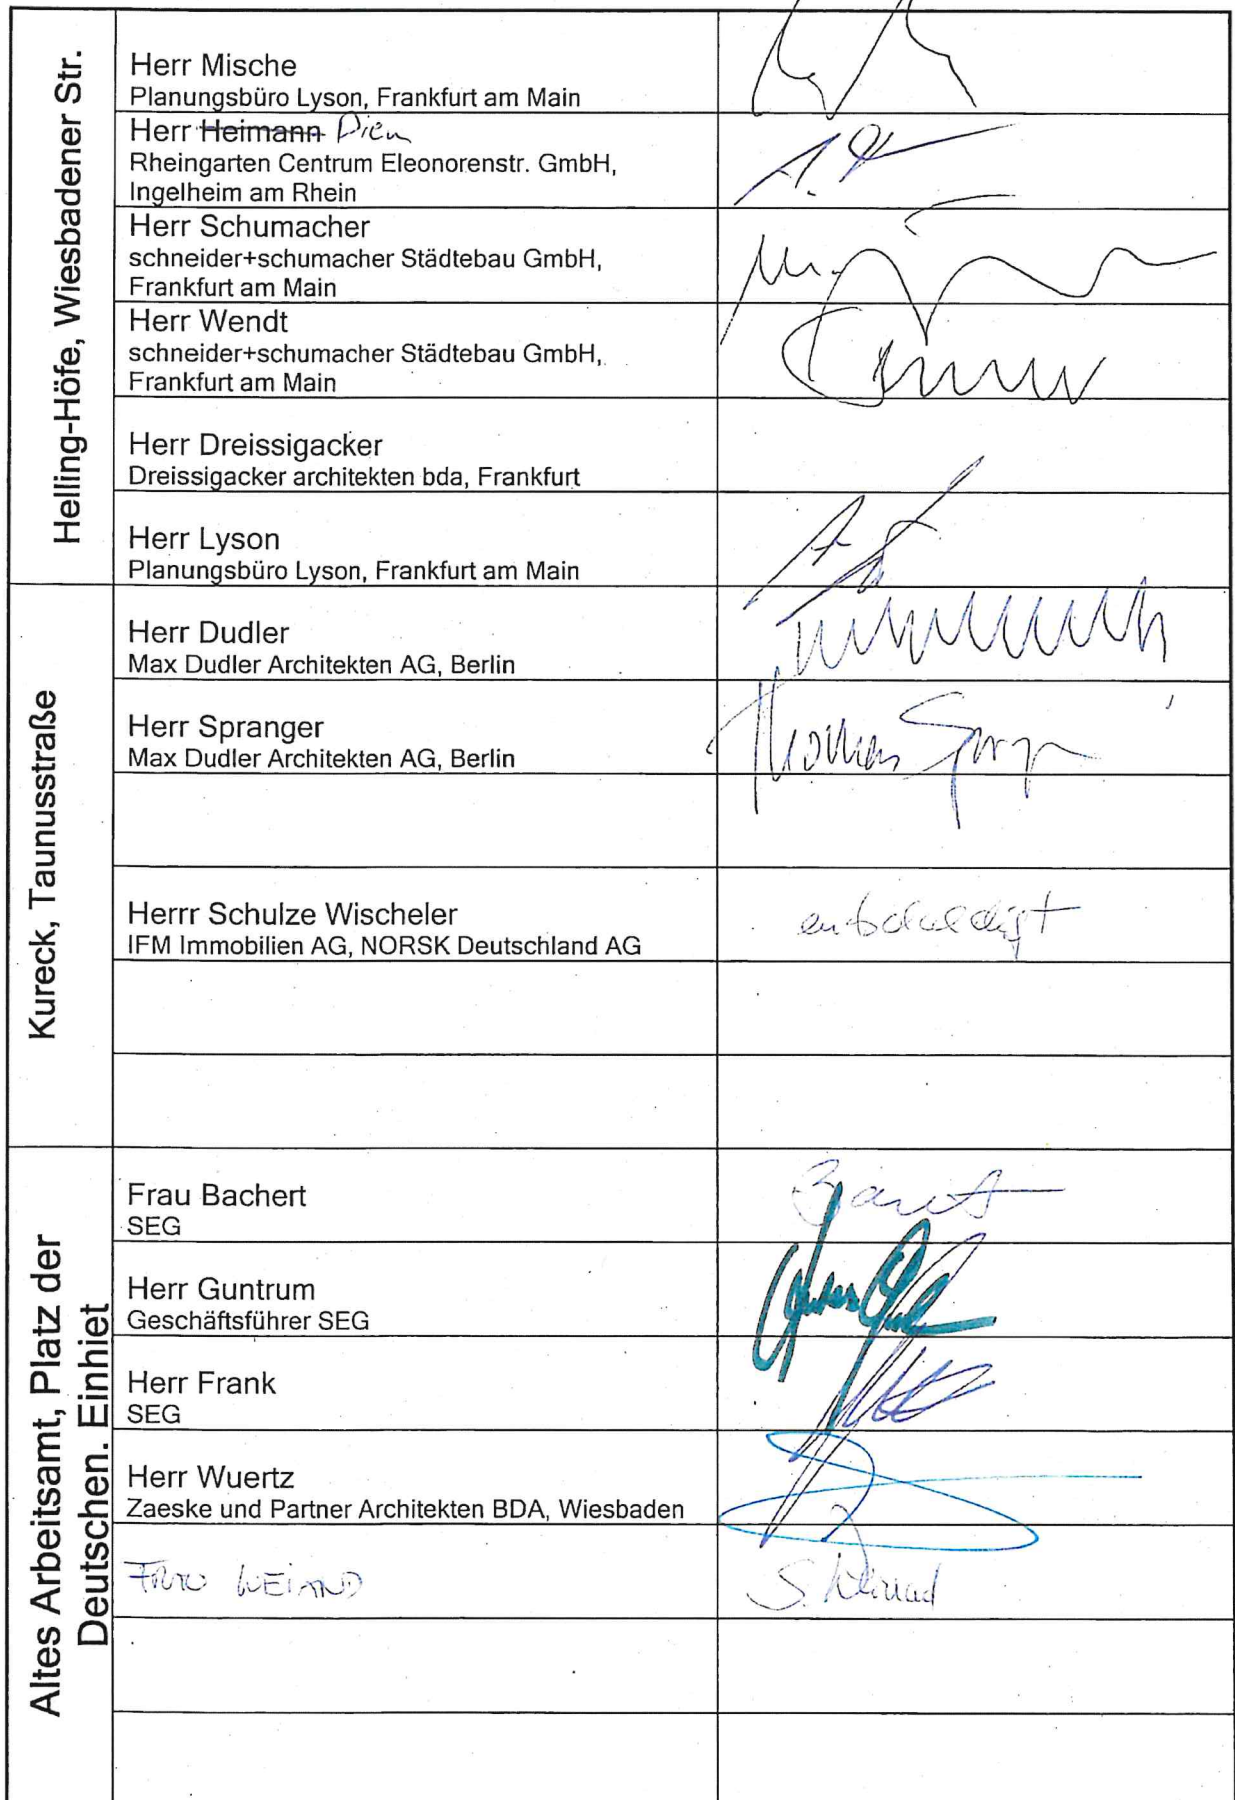 Helling-Höfe, Wiesbadener Str.
Herr Mische
Planungsbüro Lyson, Frankfurt am Main
Herr Heimann Diem
Rheingarten Centrum Eleonorenstr. GmbH,
Ingelheim am Rhein
Herr Schumacher
schneider+schumacher Städtebau GmbH,
Frankfurt am Main
Herr Wendt
schneider+schumacher Städtebau GmbH,
Frankfurt am Main
Herr Dreissigacker
Dreissigacker architekten bda, Frankfurt
Herr Lyson
Planungsbüro Lyson, Frankfurt am Main
Kureck, Taunusstraße
Herr Dudler
Max Dudler Architekten AG, Berlin
Herr Spranger
Max Dudler Architekten AG, Berlin
Thomas
Herrr Schulze Wischeler
IFM Immobilien AG, NORSK Deutschland AG
entschuldigt
Altes Arbeitsamt, Platz der
Deutschen. Einhiet
Frau Bachert
SEG
Herr Guntrum
Geschäftsführer SEG
Herr Frank
SEG
Herr Wuertz
Zaeske und Partner Architekten BDA, Wiesbaden
WEIAND
S. Weiand